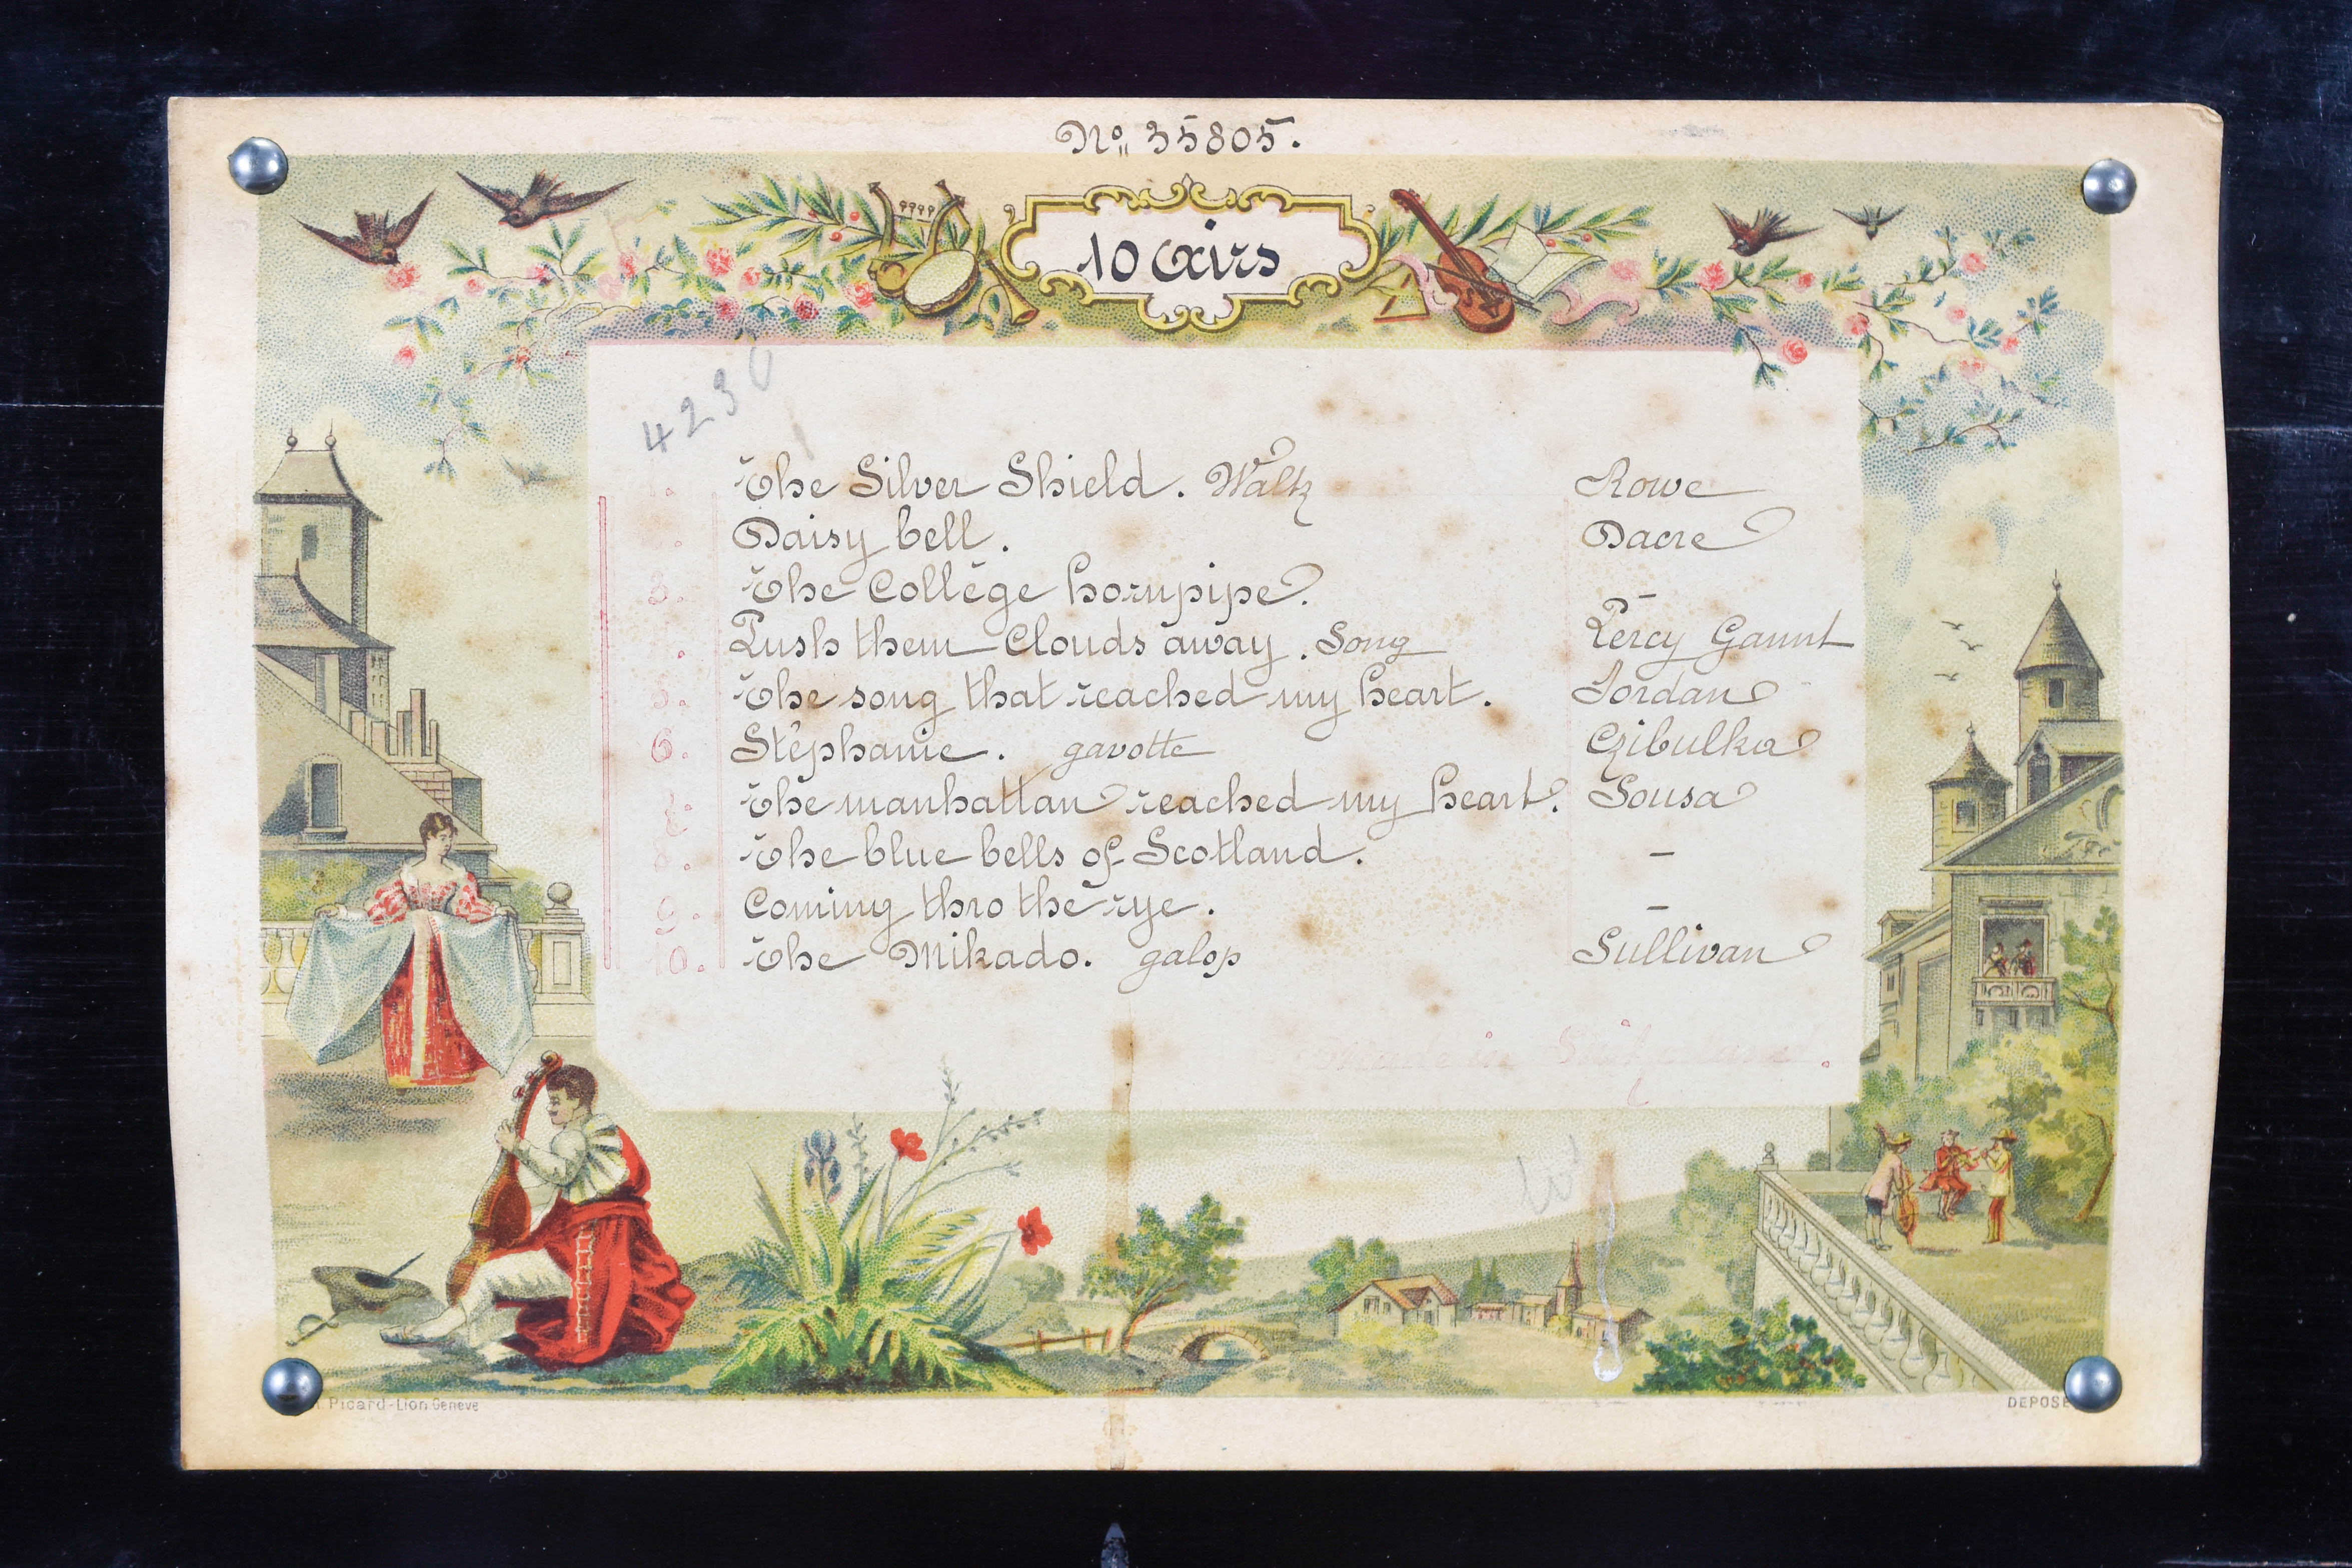 No 35805.
10 airs
4230
The Silver Shield. Waltz Rowe
Daisy bell. Dacre
3. The Collège hornpipe. –
Push them Clouds away. Song Percy Gaunt
5. The song that reached my heart. Jordan
6. Stéphanie. gavotte Czibulka
The manhattan reached my heart. Sousa
8. The blue bells of Scotland. –
9. Coming thro the rye. –
10. The Mikado. galop Sullivan
Made in Switzerland.
Picard-Lion. Genève
DEPOSE